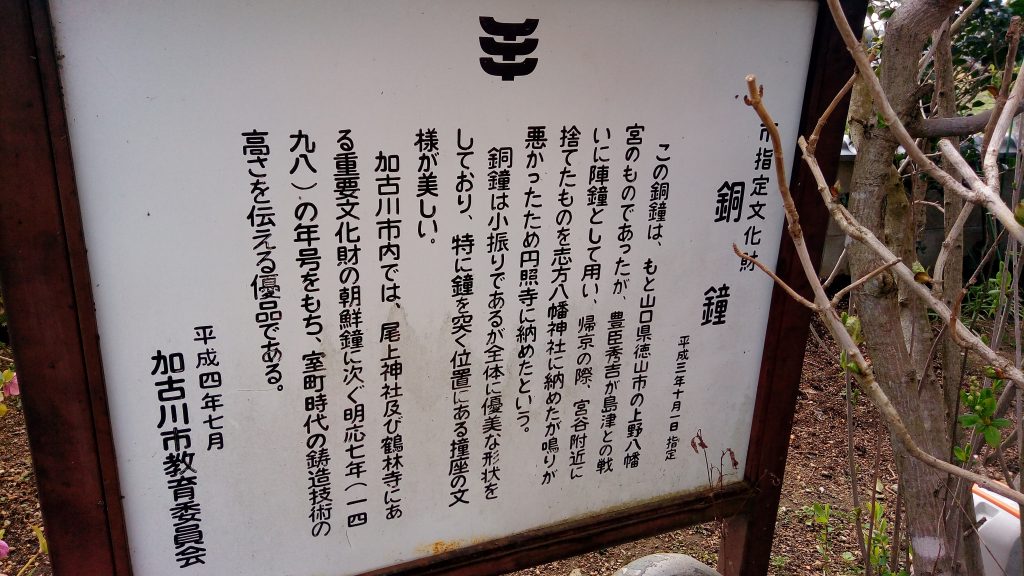 市指定文化財
銅鐘
平成三年十月一日指定
この銅鐘は、もと山口県徳山市の上野八幡
宮のものであったが、豊臣秀吉が島津との戦
いに陣鐘として用い、帰京の際、宮谷附近に
捨てたものを志方八幡神社に納めたが鳴りが
悪かったため円照寺に納めたという。
銅鐘は小振りであるが全体に優美な形状を
しており、特に鐘を突く位置にある撞座の文
様が美しい。
加古川市内では、尾上神社及び鶴林寺にあ
る重要文化財の朝鮮鐘に次ぐ明応七年(一四
九八)の年号をもち、室町時代の鋳造技術の
高さを伝える優品である。
平成四年七月
加古川市教育委員会